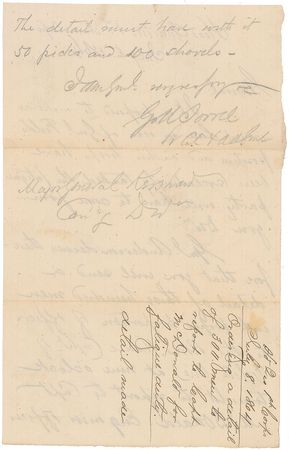 The detail must have with it
50 picks and 100 shovels -
I am Genl. very respy
G M Sorrel
Major General Kershaw
Com'g Div
Hd Qrs 1st Corps
July 8, 1864
Ordering a detail
of 300 men to
report to Capt
McDonald for
fatigue duty.
detail made